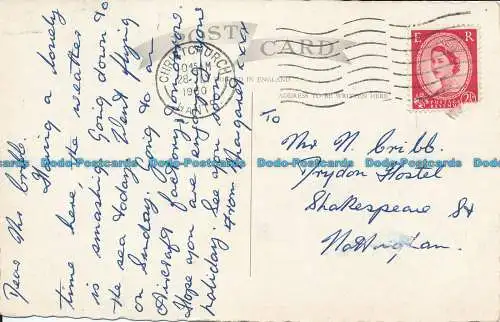 POST CARD
PRINTED IN ENGLAND
ADDRESS TO BE WRITTEN HERE
CHRISTCHURCH
10 45 AM
1960
HANTS
E R
POSTAGE
REVENUE
2½D
Dear Mrs Cribb.
Having a lovely
time here, the weather
is smashing. Going down to
the sea today. Went flying
on Sunday. Going to an
Aircraft factory tomorrow.
Hope you are enjoying your
holiday. See you soon
from Margaret xxx
TO
Mrs N. Cribb.
Drydon Hostel
Shakespeare St
Nottingham.
Dodo-Postcards Dodo-Postcards Dodo-Postcards Dodo-Postcards Dodo-Postcards